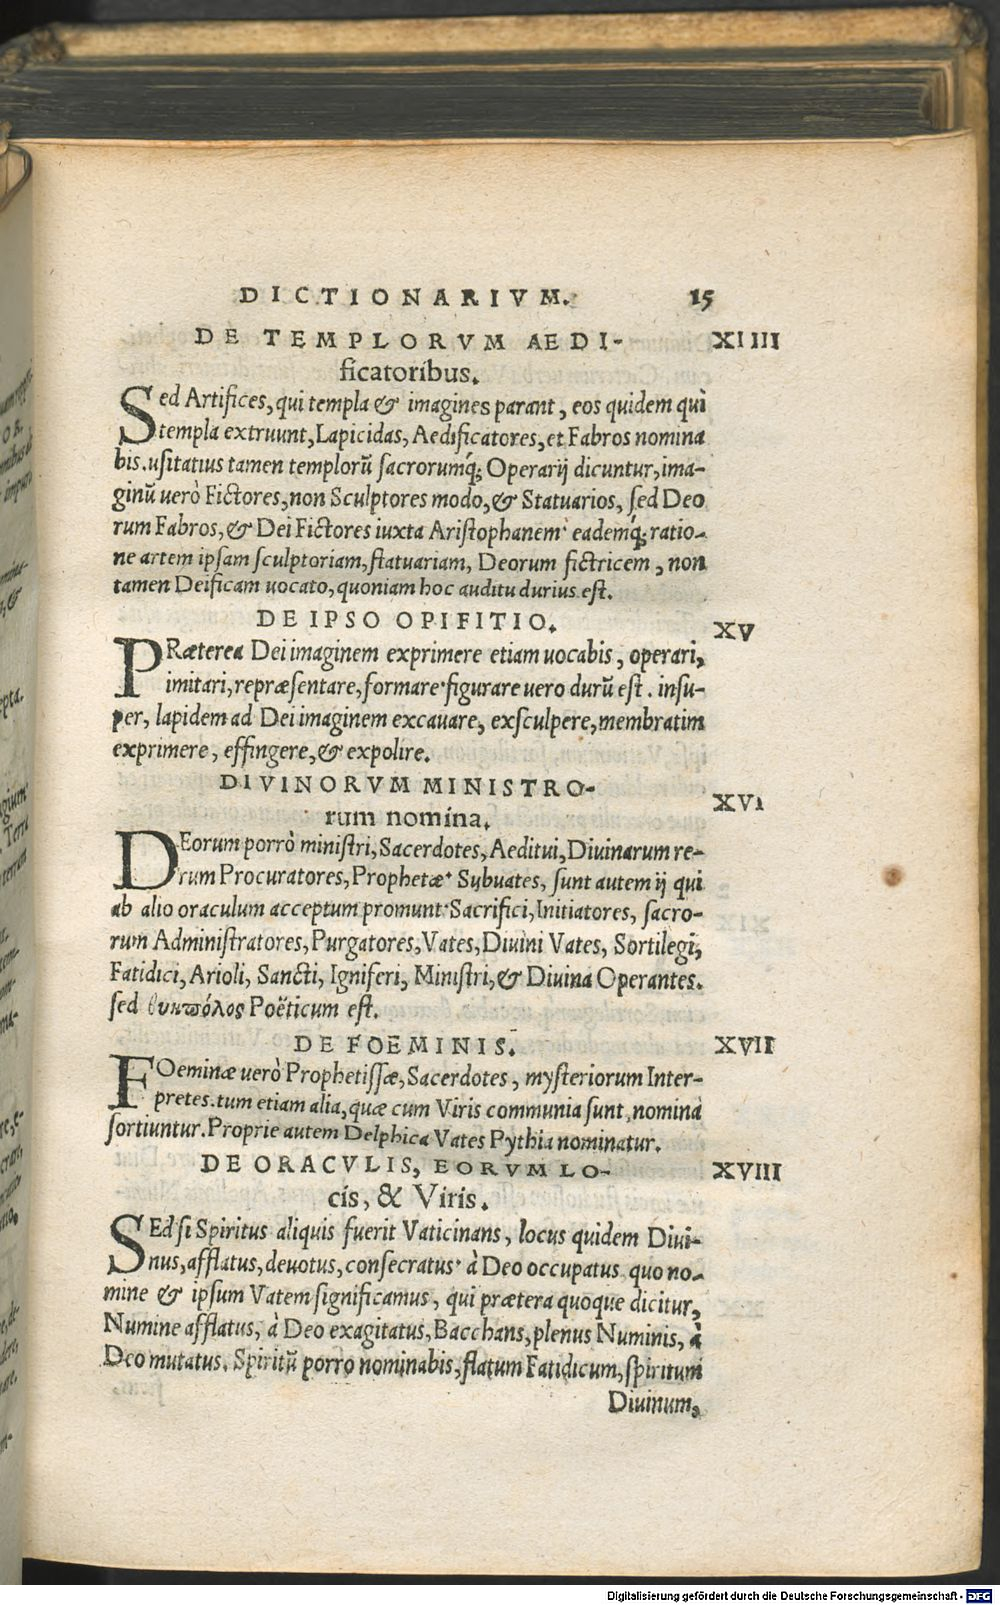 DICTIONARIVM. 15
DE TEMPLORVM AEDI- XIIII
ficatoribus.
Sed Artifices, qui templa & imagines parant, eos quidem qui
templa extruunt, Lapicidas, Aedificatores, et Fabros nomina
bis. usitatius tamen templorū sacrorumq́; Operarij dicuntur, ima-
ginū uerò Fictores, non Sculptores modo, & Statuarios, sed Deo
rum Fabros, & Dei Fictores iuxta Aristophanem· eademq́; ratio-
ne artem ipsam sculptoriam, statuariam, Deorum fictricem, non
tamen Deificam uocato, quoniam hoc auditu durius est.
DE IPSO OPIFITIO. XV
PRæterea Dei imaginem exprimere etiam uocabis, operari,
imitari, repræsentare, formare· figurare uero durū est. insu-
per, lapidem ad Dei imaginem excauare, exsculpere, membratim
exprimere, effingere, & expolire.
DIVINORVM MINISTRO- XVI
rum nomina.
DEorum porrò ministri, Sacerdotes, Aeditui, Diuinarum re-
rum Procuratores, Prophetæ· Subuates, sunt autem ij qui
ab alio oraculum acceptum promunt· Sacrifici, Initiatores, sacro-
rum Administratores, Purgatores, Vates, Diuini Vates, Sortilegi,
Fatidici, Arioli, Sancti, Igniferi, Ministri, & Diuina Operantes.
sed θυηπόλος Poëticum est.
DE FOEMINIS. XVII
FOeminæ uerò Prophetissæ, Sacerdotes, mysteriorum Inter-
pretes. tum etiam alia, quæ cum Viris communia sunt, nomina
sortiuntur. Proprie autem Delphica Vates Pythia nominatur.
DE ORACVLIS, EORVM LO- XVIII
cis, & Viris.
SEd si Spiritus aliquis fuerit Vaticinans, locus quidem Diui-
nus, afflatus, deuotus, consecratus· à Deo occupatus quo no-
mine & ipsum Vatem significamus, qui prætera quoque dicitur,
Numine afflatus, à Deo exagitatus, Bacchans, plenus Numinis, à
Deo mutatus. Spiritū porro nominabis, flatum Fatidicum, spiritum
Diuinum,
Digitalisierung gefördert durch die Deutsche Forschungsgemeinschaft - DFG